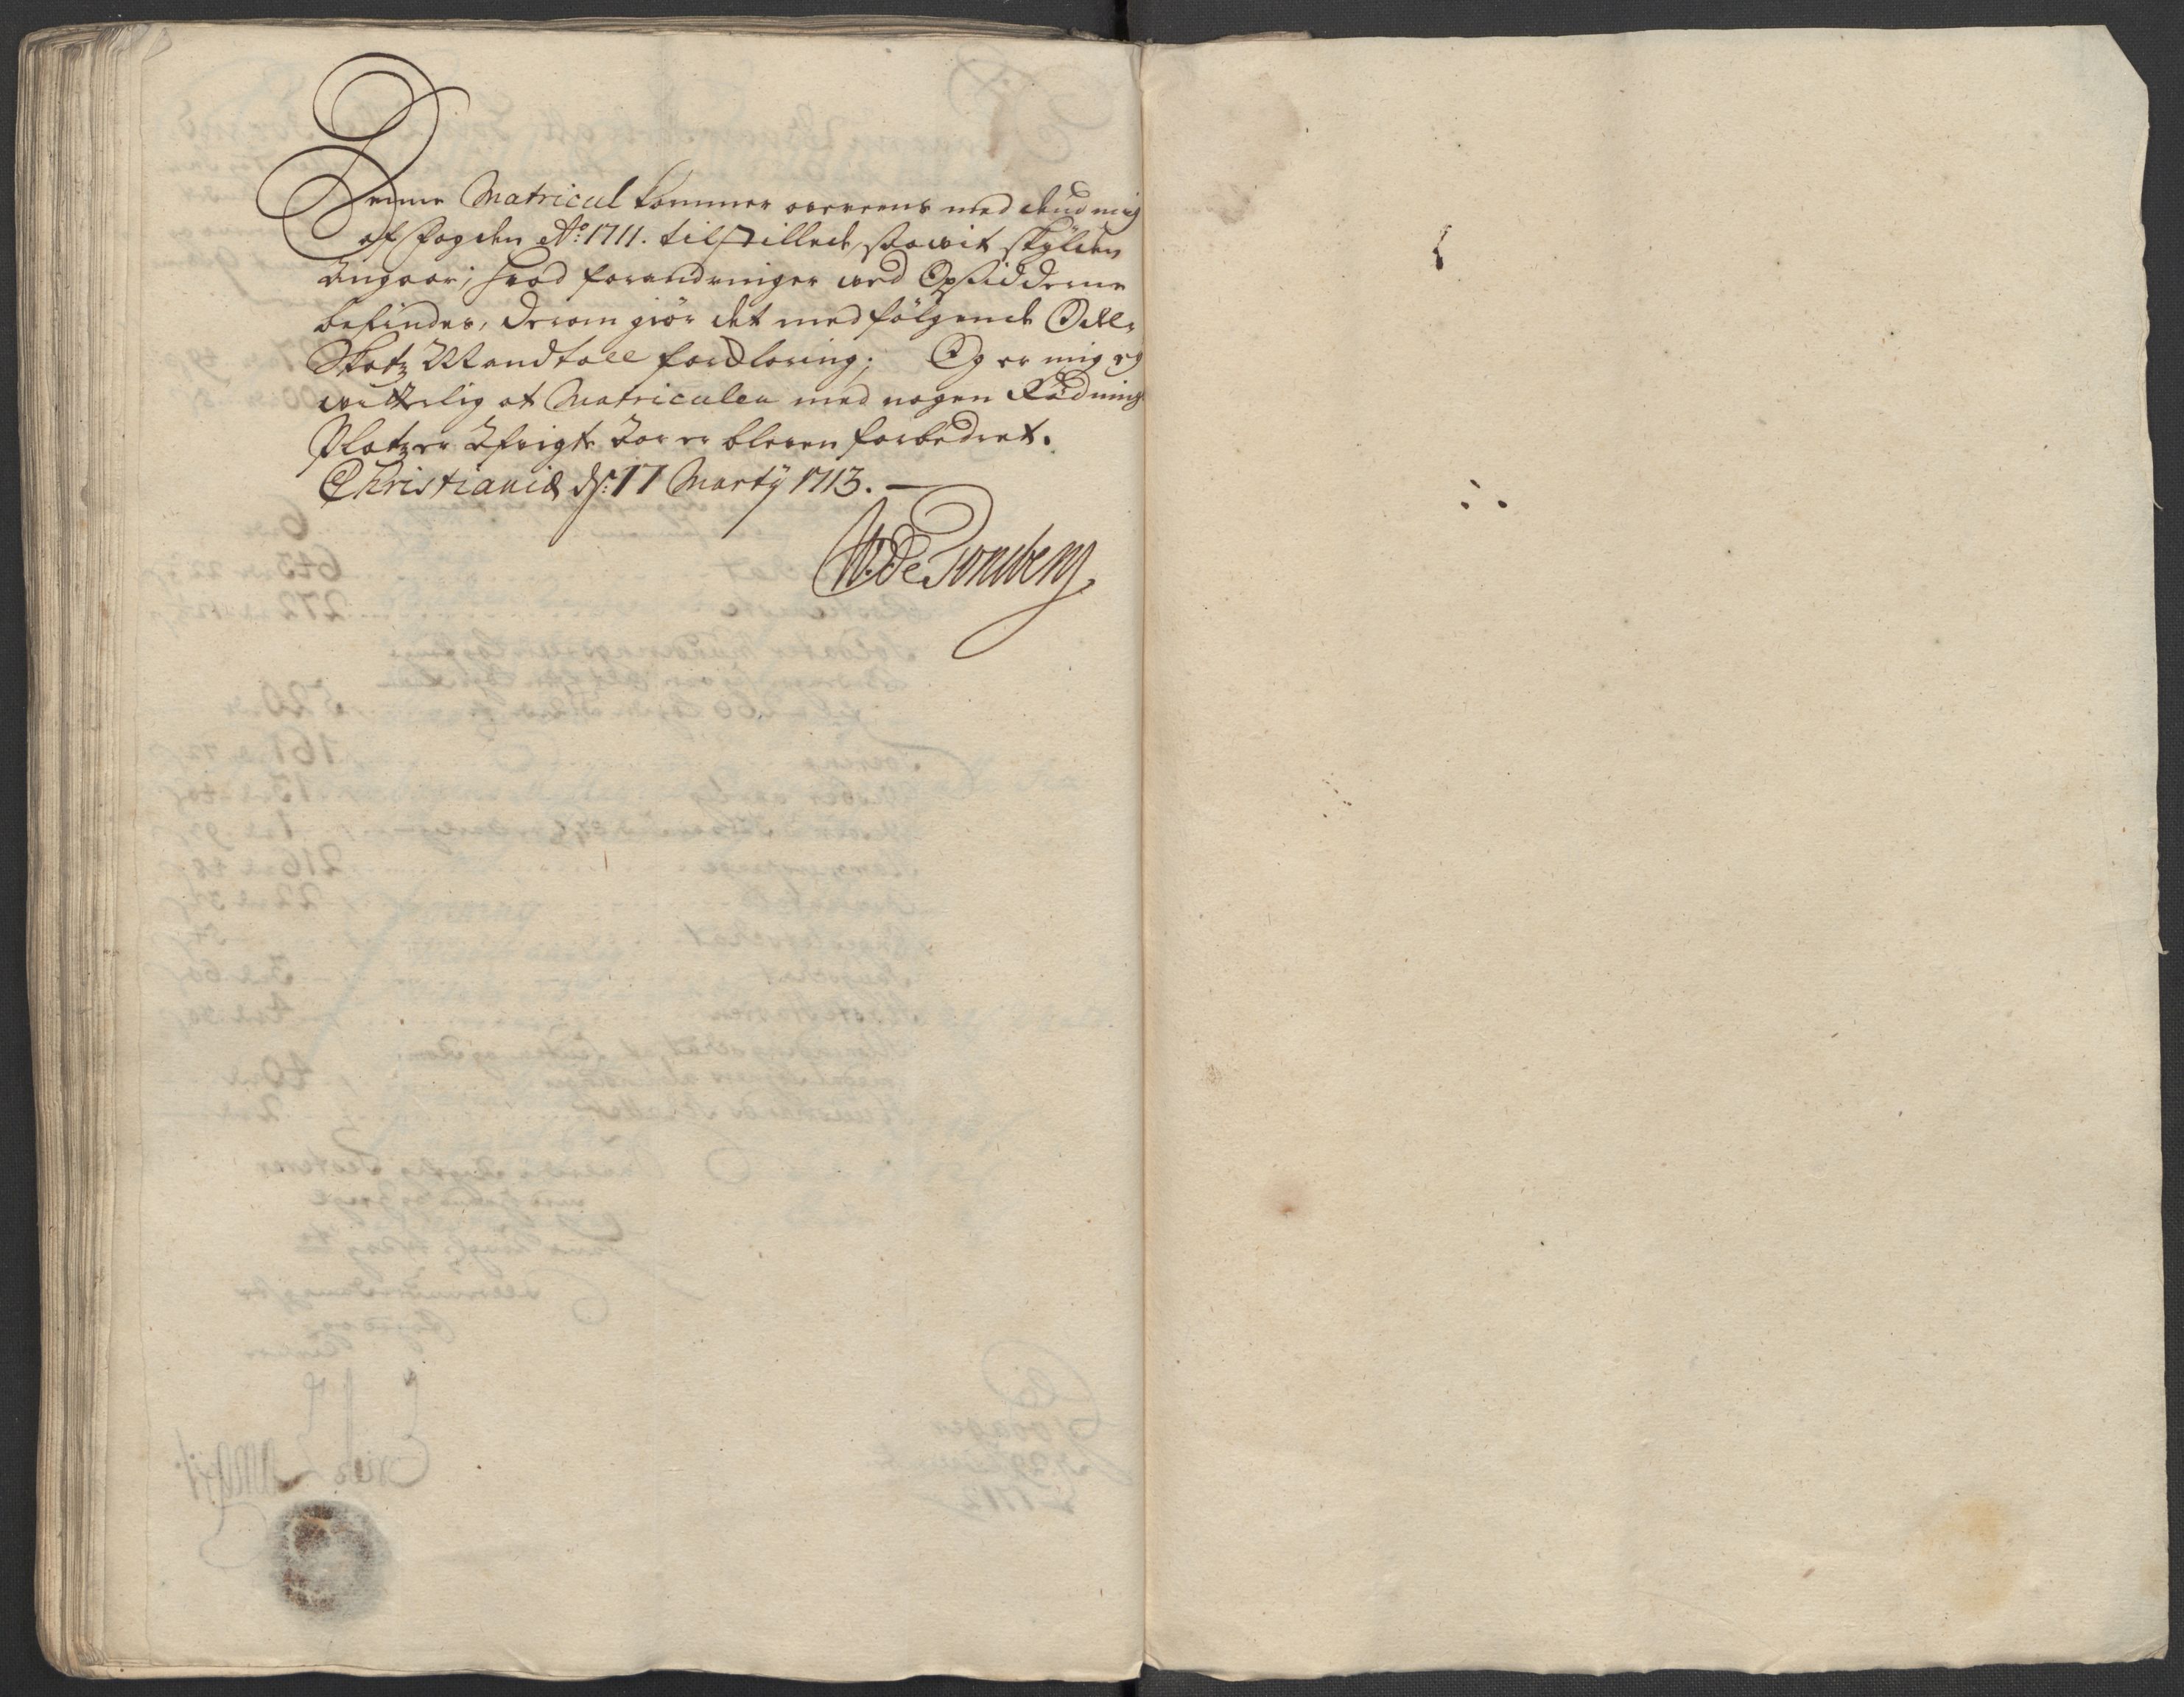 Denne Matricul kommer overeens med dend mig
af Fogden A:o 1711. tilstillede, saawit skylden
angaar; hvad forandringer wed Opsidderne
befindes, derom giør det medfølgende Odels
Skatz Mandtall forklaring; Og er mig ey
witterlig at Matriculen med nogen Rødnings
Platzer Afvigte Aar er bleven forbedret.
Christiania ds: 17 Marty 1713.
W. De Tonsberg